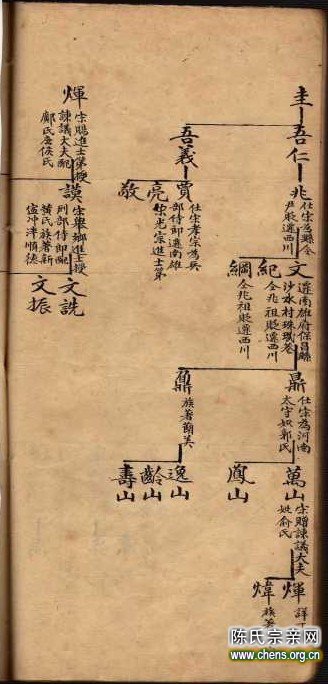 圭
吾仁
吾義
兆
仕宋為縣令
尹貶遷西川
賈
仕宋孝宗為兵
部侍郎遷南雄
亮
宋光宗進士第
敬
文
遷南雄府保昌縣
沙水村珠璣巷
紀
仝兆祖貶遷西川
綱
仝兆祖貶遷西川
鼎
仕宋為河南
太守妣郭氏
鼐
族著簡美
萬山
宋贈諫議大夫
妣俞氏
鳳山
逸山
齡山
壽山
煇
煒
族著
煇
宋賜進士第授
諫議大夫配
鄺氏
謨
宋舉鄉進士授
刑部侍郎配
黃氏族著新
會沖泮順德
文詵
文振
陈氏宗亲网
www.chens.org.cn